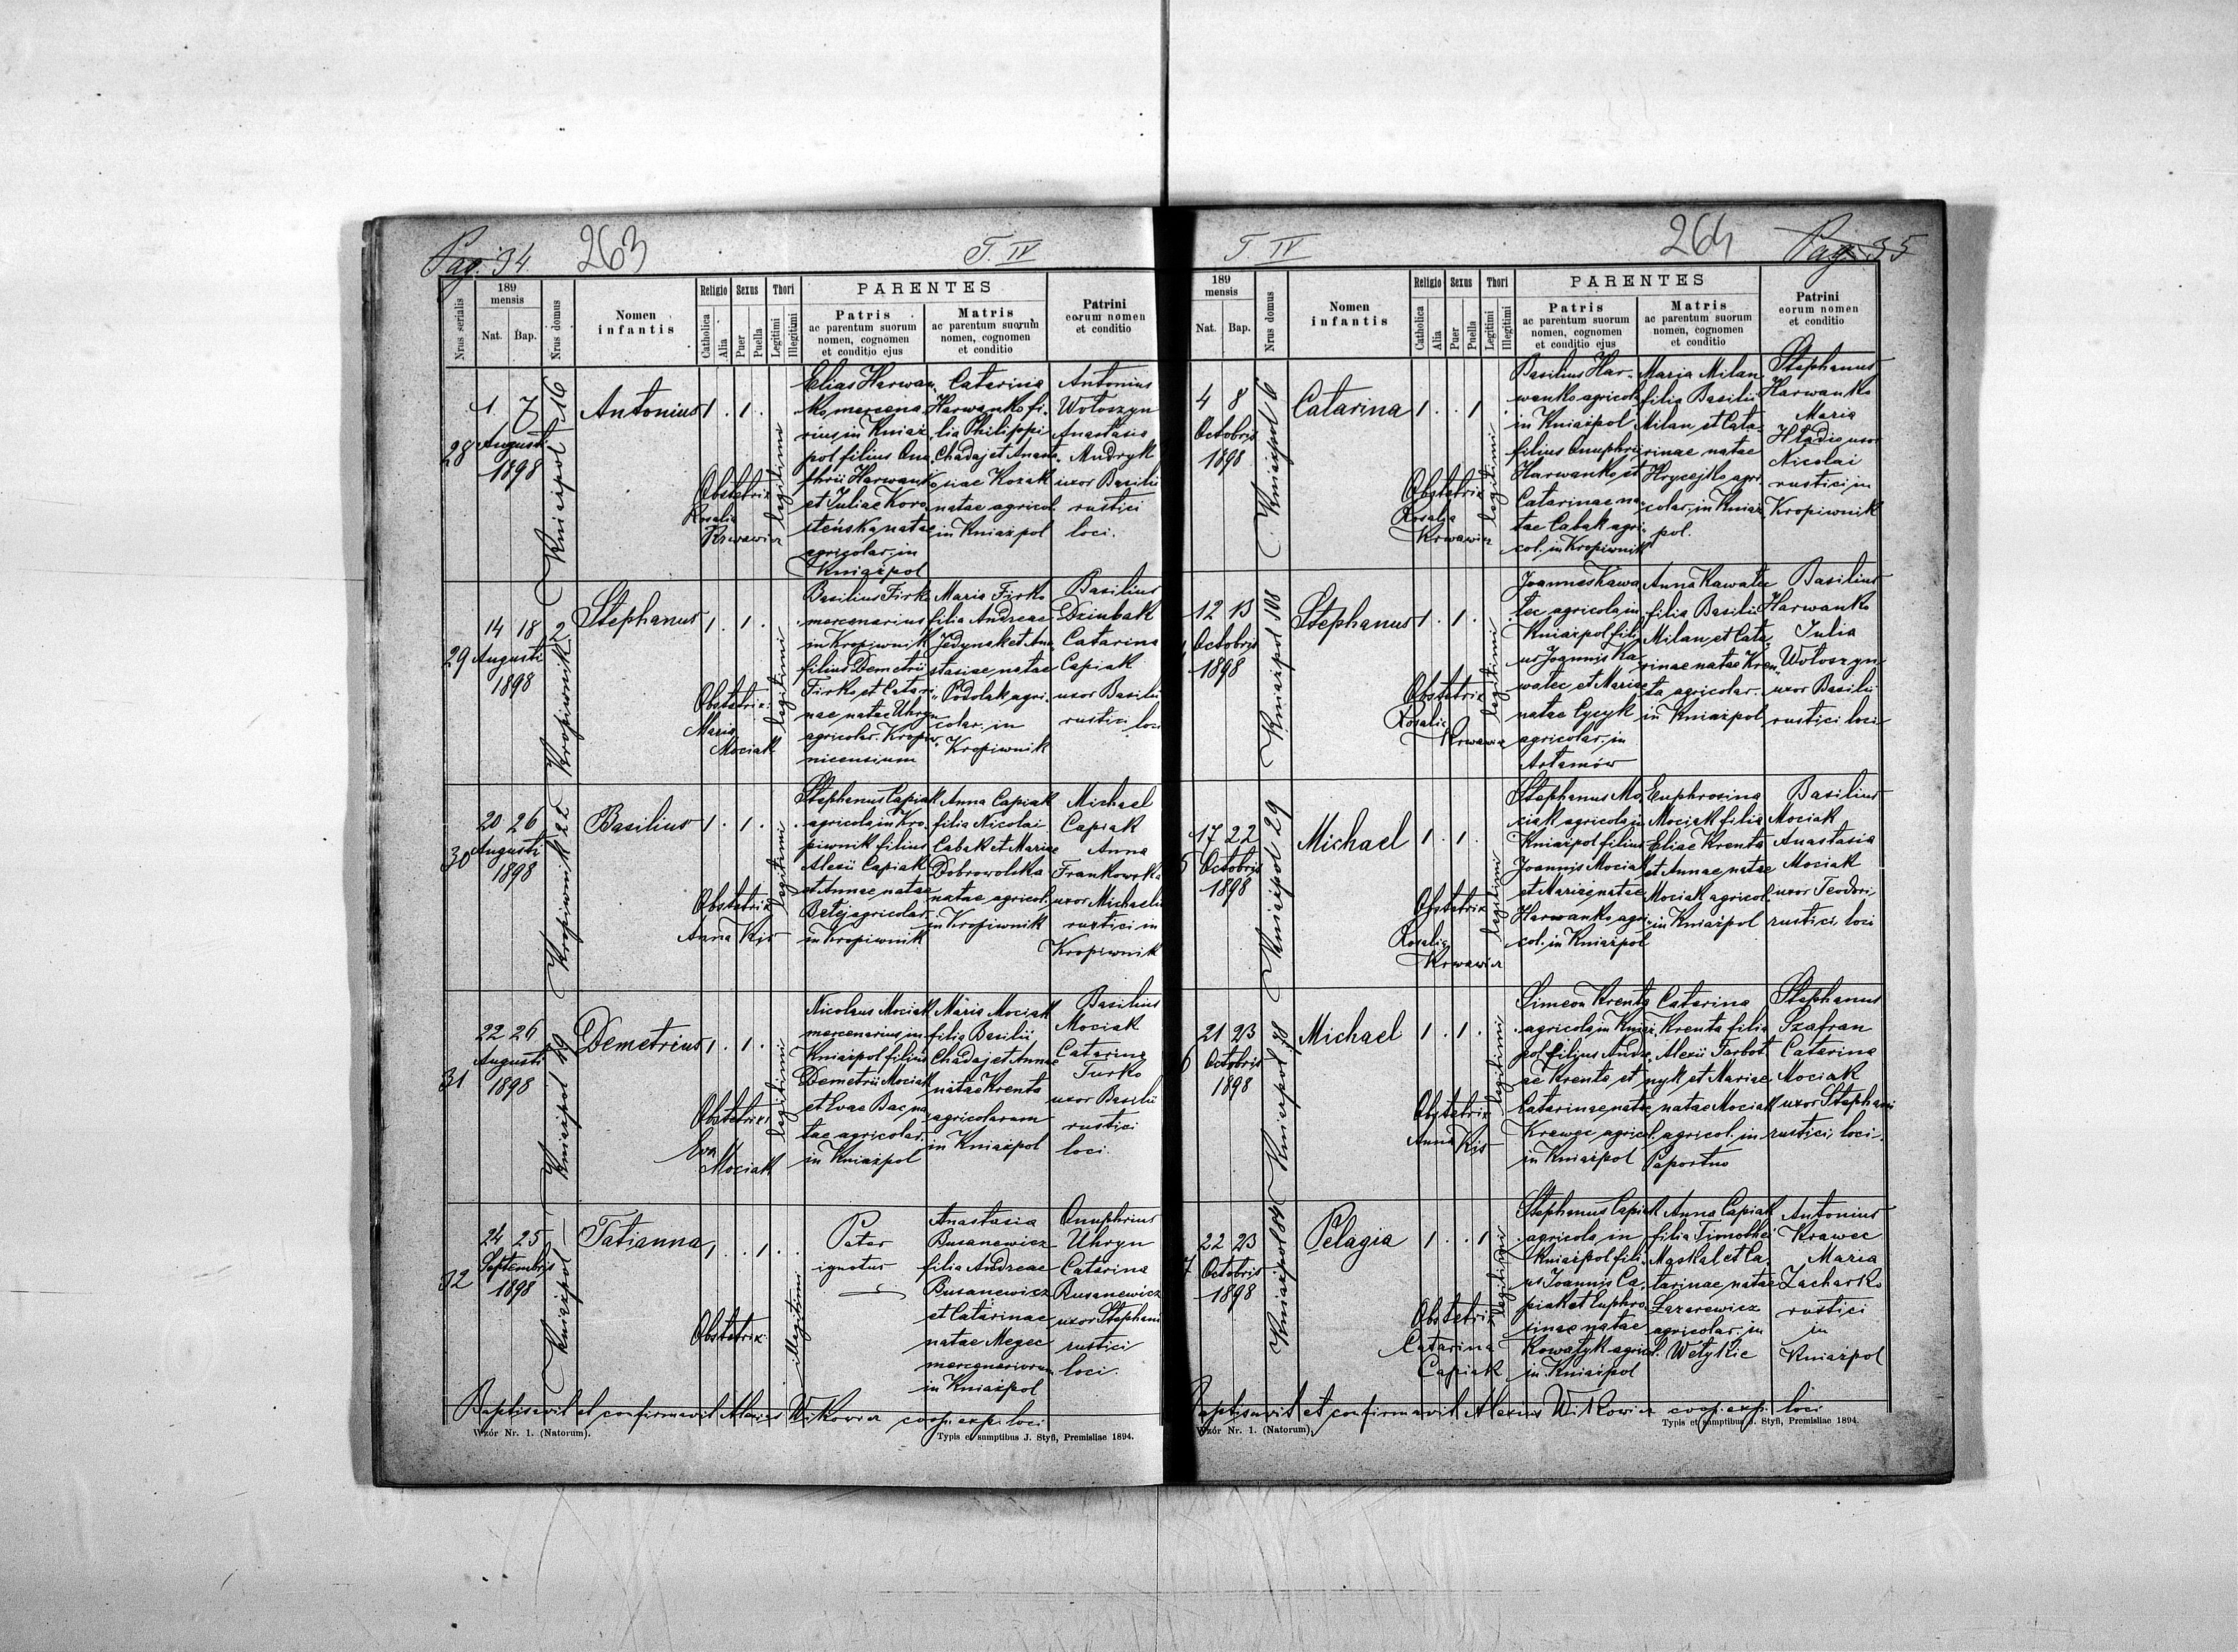 Pag. 34
263
T. IV
Nrus serialis
189
mensis
Nat.
Bap.
Nrus domus
Nomen
infantis
Religio
Catholica
Alia
Sexus
Puer
Puella
Thori
Legitimi
Illegitimi
PARENTES
Patris
ac parentum suorum
nomen, cognomen
et conditio ejus
Matris
ac parentum suorum
nomen, cognomen
et conditio
Patrini
eorum nomen
et conditio
28
1 7
Augusti
1898
Kniażpol 16
Antonius
1 . 1 .
legitimi
Obstetrix
Rosalia
Krwawicz
Elias Harwan
ko mercena
rius in Kniaż
pol filius Onu
phrii Harwanko
et Juliae Koro
steńska natae
agricolar. in
Kniażpol
Catarina
Harwanko fi
lia Philippi
Chadaj et Anasta
siae Kozak
natae agricol.
in Kniażpol
Antonius
Wołoszyn
Anastasia
Mudryk
uxor Basilii
rustici
loci.
29
14 18
Augusti
1898
Kropiwnik 2
Stephanus
1 . 1 .
legitimi
Obstetrix
Maria
Mociak
Basilius Firko
mercenarius
in Kropiwnik
filius Demetrii
Firko et Catari
nae natae Uhryn
agricolar. Kropiw
nicensium
Maria Firko
filia Andreae
Jedynak et Ana
stasiae natae
Podolak agri
colar. in
Kropiwnik
Basilius
Dziubak
Catarina
Capiak
uxor Basilii
rustici loci
30
20 26
Augusti
1898
Kropiwnik 22
Basilius
1 . 1 .
legitimi
Obstetrix
Anna Kijs
Stephanus Capiak
agricola in Kro
piwnik filius
Alexii Capiak
et Annae natae
Betej agricolar.
in Kropiwnik
Anna Capiak
filia Nicolai
Cabak et Mariae
Dobrowolska
natae agricol.
in Kropiwnik
Michael
Capiak
Anna
Frankowska
uxor Michaelis
rustici in
Kropiwnik
31
22 26
Augusti
1898
Kniażpol 19
Demetrius
1 . 1 .
legitimi
Obstetrix
Eva
Mociak
Nicolaus Mociak
mercenarius in
Kniażpol filius
Demetrii Mociak
et Evae Bac na
tae agricolar.
in Kniażpol
Maria Mociak
filia Basilii
Chadaj et Annae
natae Krenta
agricolarum
in Kniażpol
Basilius
Mociak
Catarina
Turko
uxor Basilii
rustici
loci.
32
24 25
Septembris
1898
Kniażpol
Tatianna
1 . . 1 .
illegitimi
Obstetrix
Pater
ignotus
Anastasia
Busanewicz
filia Andreae
Busanewicz
et Catarinae
natae Megec
mercenariorum
in Kniażpol
Onuphrius
Uhryn
Catarina
Busanewicz
uxor Stephani
rustici
loci.
Baptisavit et confirmavit Alexius Witkowicz coop. exp. loci
Wzór Nr. 1. (Natorum).
Typis et sumptibus J. Styfi, Premisliae 1894.
T. IV
264
Pag. 35
189
mensis
Nat.
Bap.
Nrus domus
Nomen
infantis
Religio
Catholica
Alia
Sexus
Puer
Puella
Thori
Legitimi
Illegitimi
PARENTES
Patris
ac parentum suorum
nomen, cognomen
et conditio ejus
Matris
ac parentum suorum
nomen, cognomen
et conditio
Patrini
eorum nomen
et conditio
4 8
Octobris
1898
Kniażpol 6
Catarina
1 . . 1
legitimi
Obstetrix
Rosalia
Krwawicz
Basilius Har
wanko agricola
in Kniażpol
filius Onuphrii
Harwanko et
Catarinae na
tae Cabak agri
col. in Kropiwnik
Maria Milan
filia Basilii
Milan et Cata
rinae natae
Hrycejko agri
colar. in Kniaż
pol.
Stephanus
Harwanko
Maria
Hładio uxor
Nicolai
rustici in
Kropiwnik
12 13
Octobris
1898
Kniażpol 108
Stephanus
1 . 1 .
legitimi
Obstetrix
Rosalia
Krwawicz
Joannes Kawa
lec agricola in
Kniażpol fili
us Joannis Ka
walec et Mariae
natae Cycyk
agricolar. in
Artamów
Anna Kawalec
filia Basilii
Milan et Cata
rinae natae Kren
ta agricolar.
in Kniażpol
Basilius
Harwanko
Julia
Wołoszyn
uxor Basilii
rustici loci
17 22
Octobris
1898
Kniażpol 29
Michael
1 . 1 .
legitimi
Obstetrix
Rosalia
Krwawicz
Stephanus Mo
ciak agricola in
Kniażpol filius
Joannis Mociak
et Mariae natae
Harwanko agri
col. in Kniażpol
Euphrosina
Mociak filia
Eliae Krenta
et Annae natae
Mociak agricol.
in Kniażpol
Basilius
Mociak
Anastasia
Mociak
uxor Teodori
rustici loci
21 23
Octobris
1898
Kniażpol 98
Michael
1 . 1 .
legitimi
Obstetrix
Anna Kijs
Simeon Krenta
agricola in Kniaż
pol filius Andre
ae Krenta et
Catarinae natae
Krawec agricol.
in Kniażpol
Catarina
Krenta filia
Alexii Farbot
nyk et Mariae
natae Mociak
agricol. in
Paportno
Stephanus
Szafran
Catarina
Mociak
uxor Stephani
rustici loci.
22 23
Octobris
1898
Kniażpol 84
Pelagia
1 . . 1
legitimi
Obstetrix
Catarina
Capiak
Stephanus Capiak
agricola in
Kniażpol fili
us Joannis Ca
piak et Euphro
sinae natae
Kowalyk agricol.
in Kniażpol
Anna Capiak
filia Timothei
Maskal et Ca
tarinae natae
Lazarewicz
agricolar. in
Wełykie
Antonius
Krawec
Maria
Zacharko
rustici
in
Kniażpol
Baptisavit et confirmavit Alexius Witkowicz coop. exp. loci
Wzór Nr. 1. (Natorum).
Typis et sumptibus J. Styfi, Premisliae 1894.